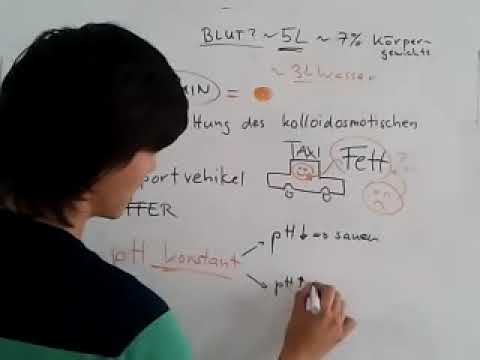 BLUT? ~ 5L ~ 7% Körper
gewichts
~ 3L Wasser
MIN =
ltung des kolloidosmotischen
TAXI
Fett
portvehikel
FFER
pH konstant
pH ↓ sauer
pH ↑